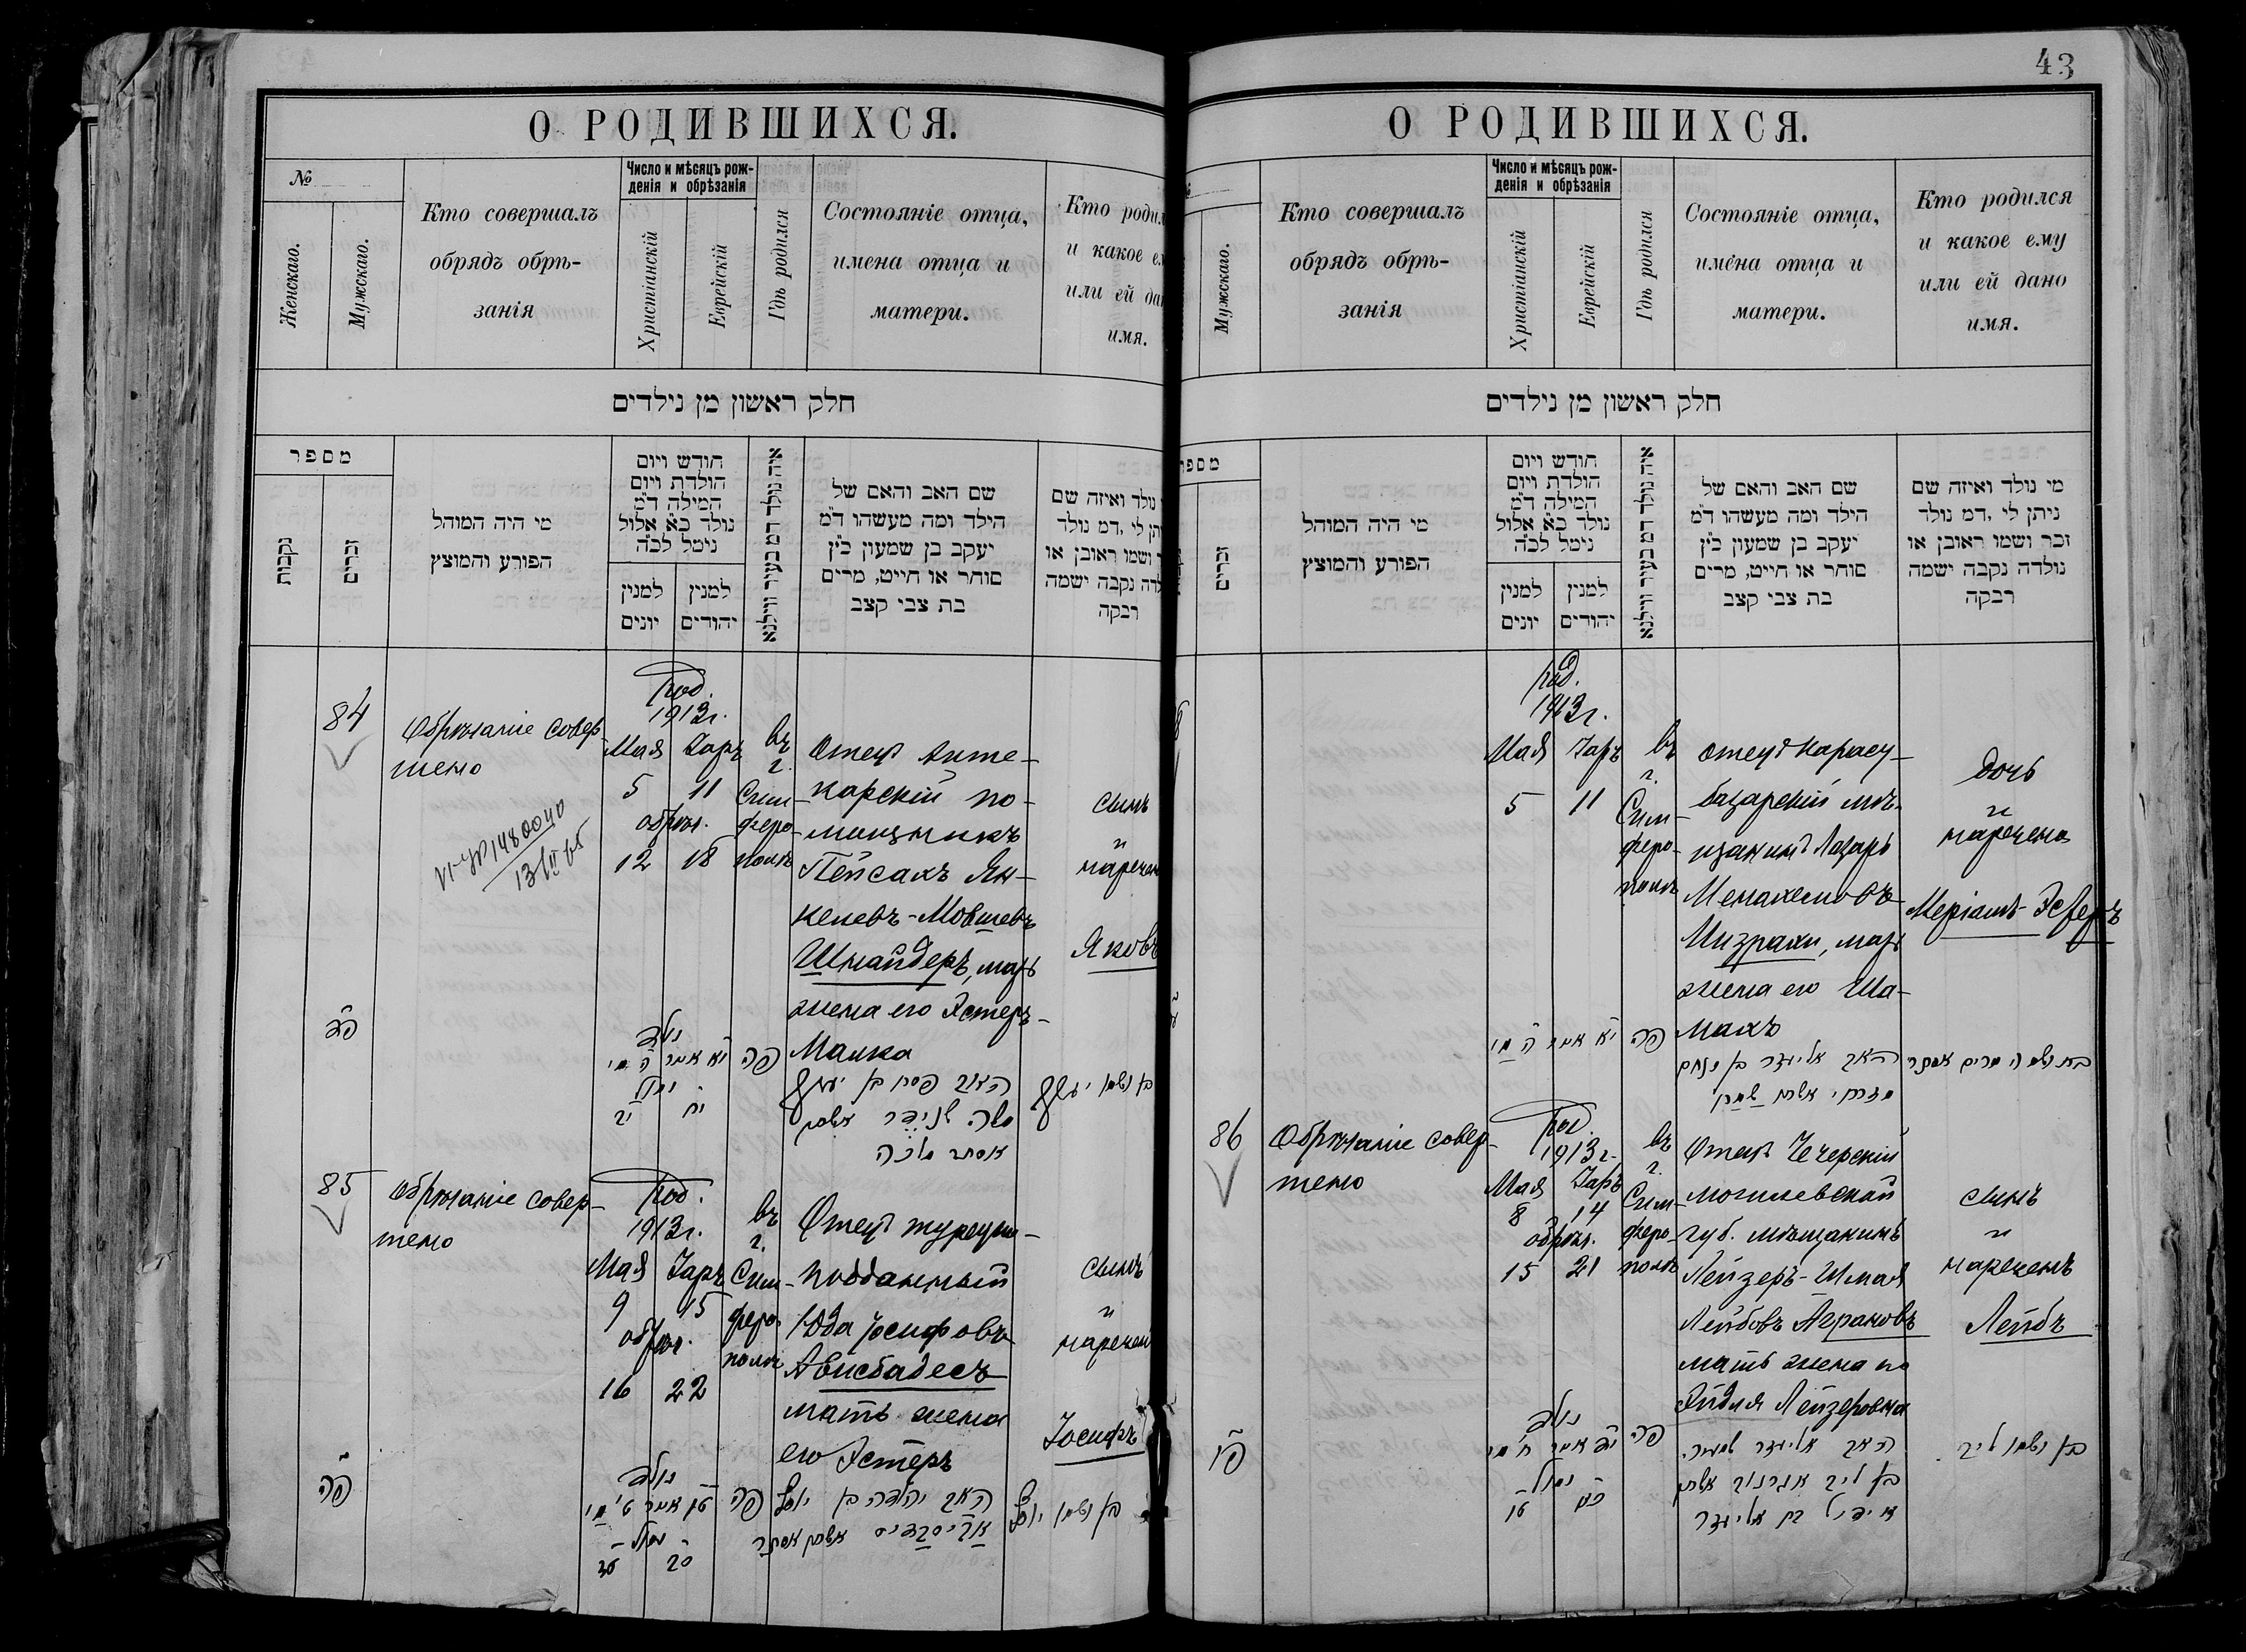 43
О РОДИВШИХСЯ.
№
Женскаго.
Мужскаго.
Кто совершалъ
обрядъ обрѣ-
занія
Число и мѣсяцъ рож-
денія и обрѣзанія
Христіанскій
Еврейскій
Гдѣ родился
Состояніе отца,
имена отца и
матери.
Кто родил
и какое е
или ей да
имя.
חלק ראשון מן נילדים
מספר
נקבות
זכרים
מי היה המוהל
הפורע והמוצץ
חודש ויום
הולדת ויום
המילה ד"מ
נולד כ"א אלול
נימל לכ"ה
למנין
יונים
למנין
יהודים
איה נולד דמ בעיר ווילנא
שם האב והאם של
הילד ומה מעשהו ד"מ
יעקב בן שמעון כ"ץ
סוחר או חייט, מרים
בת צבי קצב
נולד ואיזה שם
תן לי, דמ נולד
ושמו ראובן או
לדה נקבה ישמה
רבקה
84
Обрѣзаніе совер-
шено
Род.
1913г.
Мая Іаръ
5 11
обрѣз.
12 18
въ
г.
Сим-
феро-
полѣ
Отецъ Апте-
карскій по-
мощникъ
Пейсахъ Ян-
келевъ-Мовшевъ
Шнайдеръ, мать
жена его Эстеръ-
Малка
сынъ
и
наречен
Яковъ
פד
נולד
יא אייר ה מיי
נימול
יח יב
פה
האב פסח בן יעקב
משה שניידר אשתו
אסתר מלכה
בן ושמו יעקב
85
Обрѣзаніе совер-
шено
Род.
1913г.
Мая Іаръ
9 15
обрѣз.
16 22
въ
г.
Сим-
феро-
полѣ
Отецъ турецко-
подданный
Юда Іосифовъ
Ависбадесъ
мать жена
его Эстеръ
сынъ
и
наречен
Іосифъ
פה
נולד
טו אייר ט' מיי
נימול
פה
האב יהודה בן יוסף
אביסבדיס אשתו אסתר
בן ושמו יוסף
О РОДИВШИХСЯ.
Мужскаго.
Кто совершалъ
обрядъ обрѣ-
занія
Число и мѣсяцъ рож-
денія и обрѣзанія
Христіанскій
Еврейскій
Гдѣ родился
Состояніе отца,
имена отца и
матери.
Кто родился
и какое ему
или ей дано
имя.
חלק ראשון מן נילדים
מספר
זכרים
מי היה המוהל
הפורע והמוצץ
חודש ויום
הולדת ויום
המילה ד"מ
נולד כ"א אלול
נימל לכ"ה
למנין
יונים
למנין
יהודים
איה נולד דמ בעיר ווילנא
שם האב והאם של
הילד ומה מעשהו ד"מ
יעקב בן שמעון כ"ץ
סוחר או חייט, מרים
בת צבי קצב
מי נולד ואיזה שם
ניתן לי, דמ נולד
זכר ושמו ראובן או
נולדה נקבה ישמה
רבקה
Род.
1913г.
Мая Іаръ
5 11
въ
г.
Сим-
феро-
полѣ
Отецъ Карасу-
базарскій мѣ-
щанинъ Лазарь
Менахемовъ
Мизрахи, мать
жена его Ша-
махъ
дочь
и
наречена
Меріамъ-Эсѳеръ
יא אייר ה מיי
פה
האב אליעזר בן מנחם
מזרחי אשתו
בת ושמה מרים אסתר
86
Обрѣзаніе совер-
шено
Род.
1913г.
Мая Іаръ
8 14
обрѣз.
15 21
въ
г.
Сим-
феро-
полѣ
Отецъ Чечерскій
могилевской
губ. мѣщанинъ
Лейзеръ-Шмая
Лейбовъ Аграновъ
мать жена его
Эйдля Лейзеровна
сынъ
и
нареченъ
Лейбъ
פו
נולד
יד אייר ח מיי
נימול
פה
האב אליעזר שמעי'
בן ליב אגרנוב אשתו
איידיל בת אליעזר
בן ושמו ליב